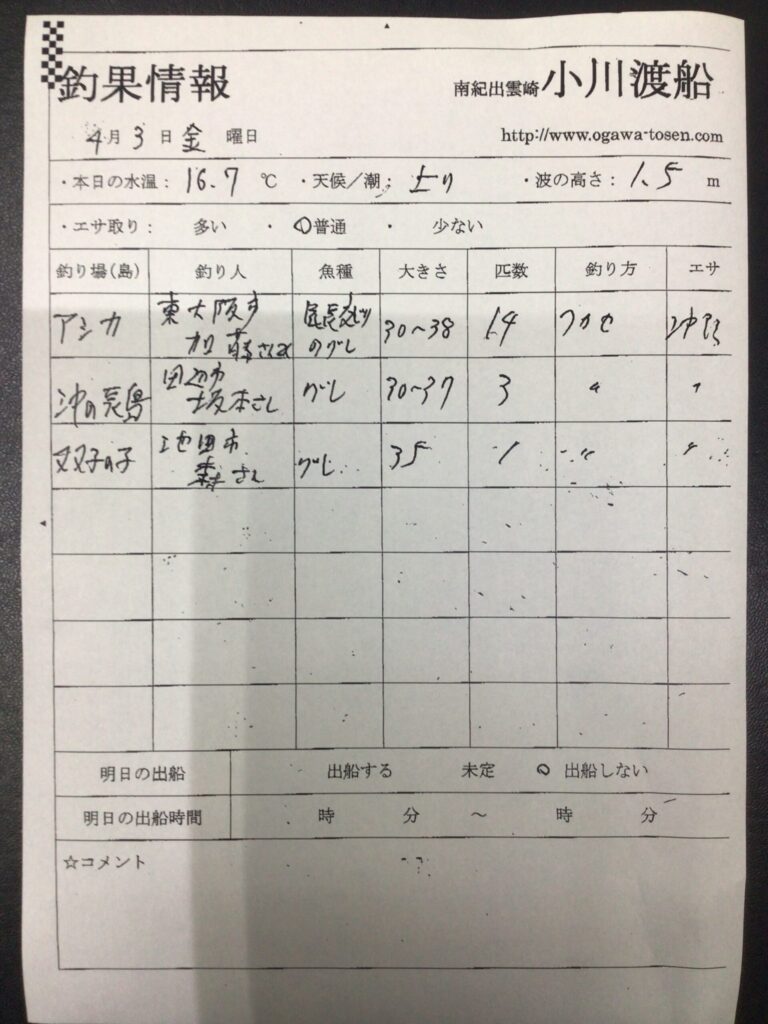 釣果情報
南紀出雲崎 小川渡船
4月3日金曜日
http://www.ogawa-tosen.com
・本日の水温： 16.7 ℃ ・天候／潮： 上り ・波の高さ： 1.5 m
・エサ取り： 多い ・ 普通 ・ 少ない
釣り場(島) 釣り人 魚種 大きさ 匹数 釣り方 エサ
アシカ 東大阪市 尾長交じり 30〜38 14 フカセ
加藤さん のグレ
沖の長島 田辺市 グレ 30〜37 3 〃 〃
坂本さん
双子の子 池田市 グレ 35 1 〃 〃
森さん
明日の出船 出船する 未定 出船しない
明日の出船時間 時 分 〜 時 分
☆コメント